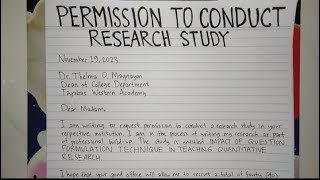 PERMISSION TO CONDUCT
RESEARCH STUDY
November 29, 2023
Dr. Thelma O. Mragragan
Dean of College Department
Tayabas Western Academy
Dear Madam,
I am writing to request permission to conduct a research study in your
respective institution. I am in the process of writing my research as part
of professional build-up. The study is entitled IMPACT OF QUESTION
FORMULATION TECHNIQUE IN TEACHING QUANTITATIVE
RESEARCH.
I hope that your good office will allow me to recruit a total of forty (40)